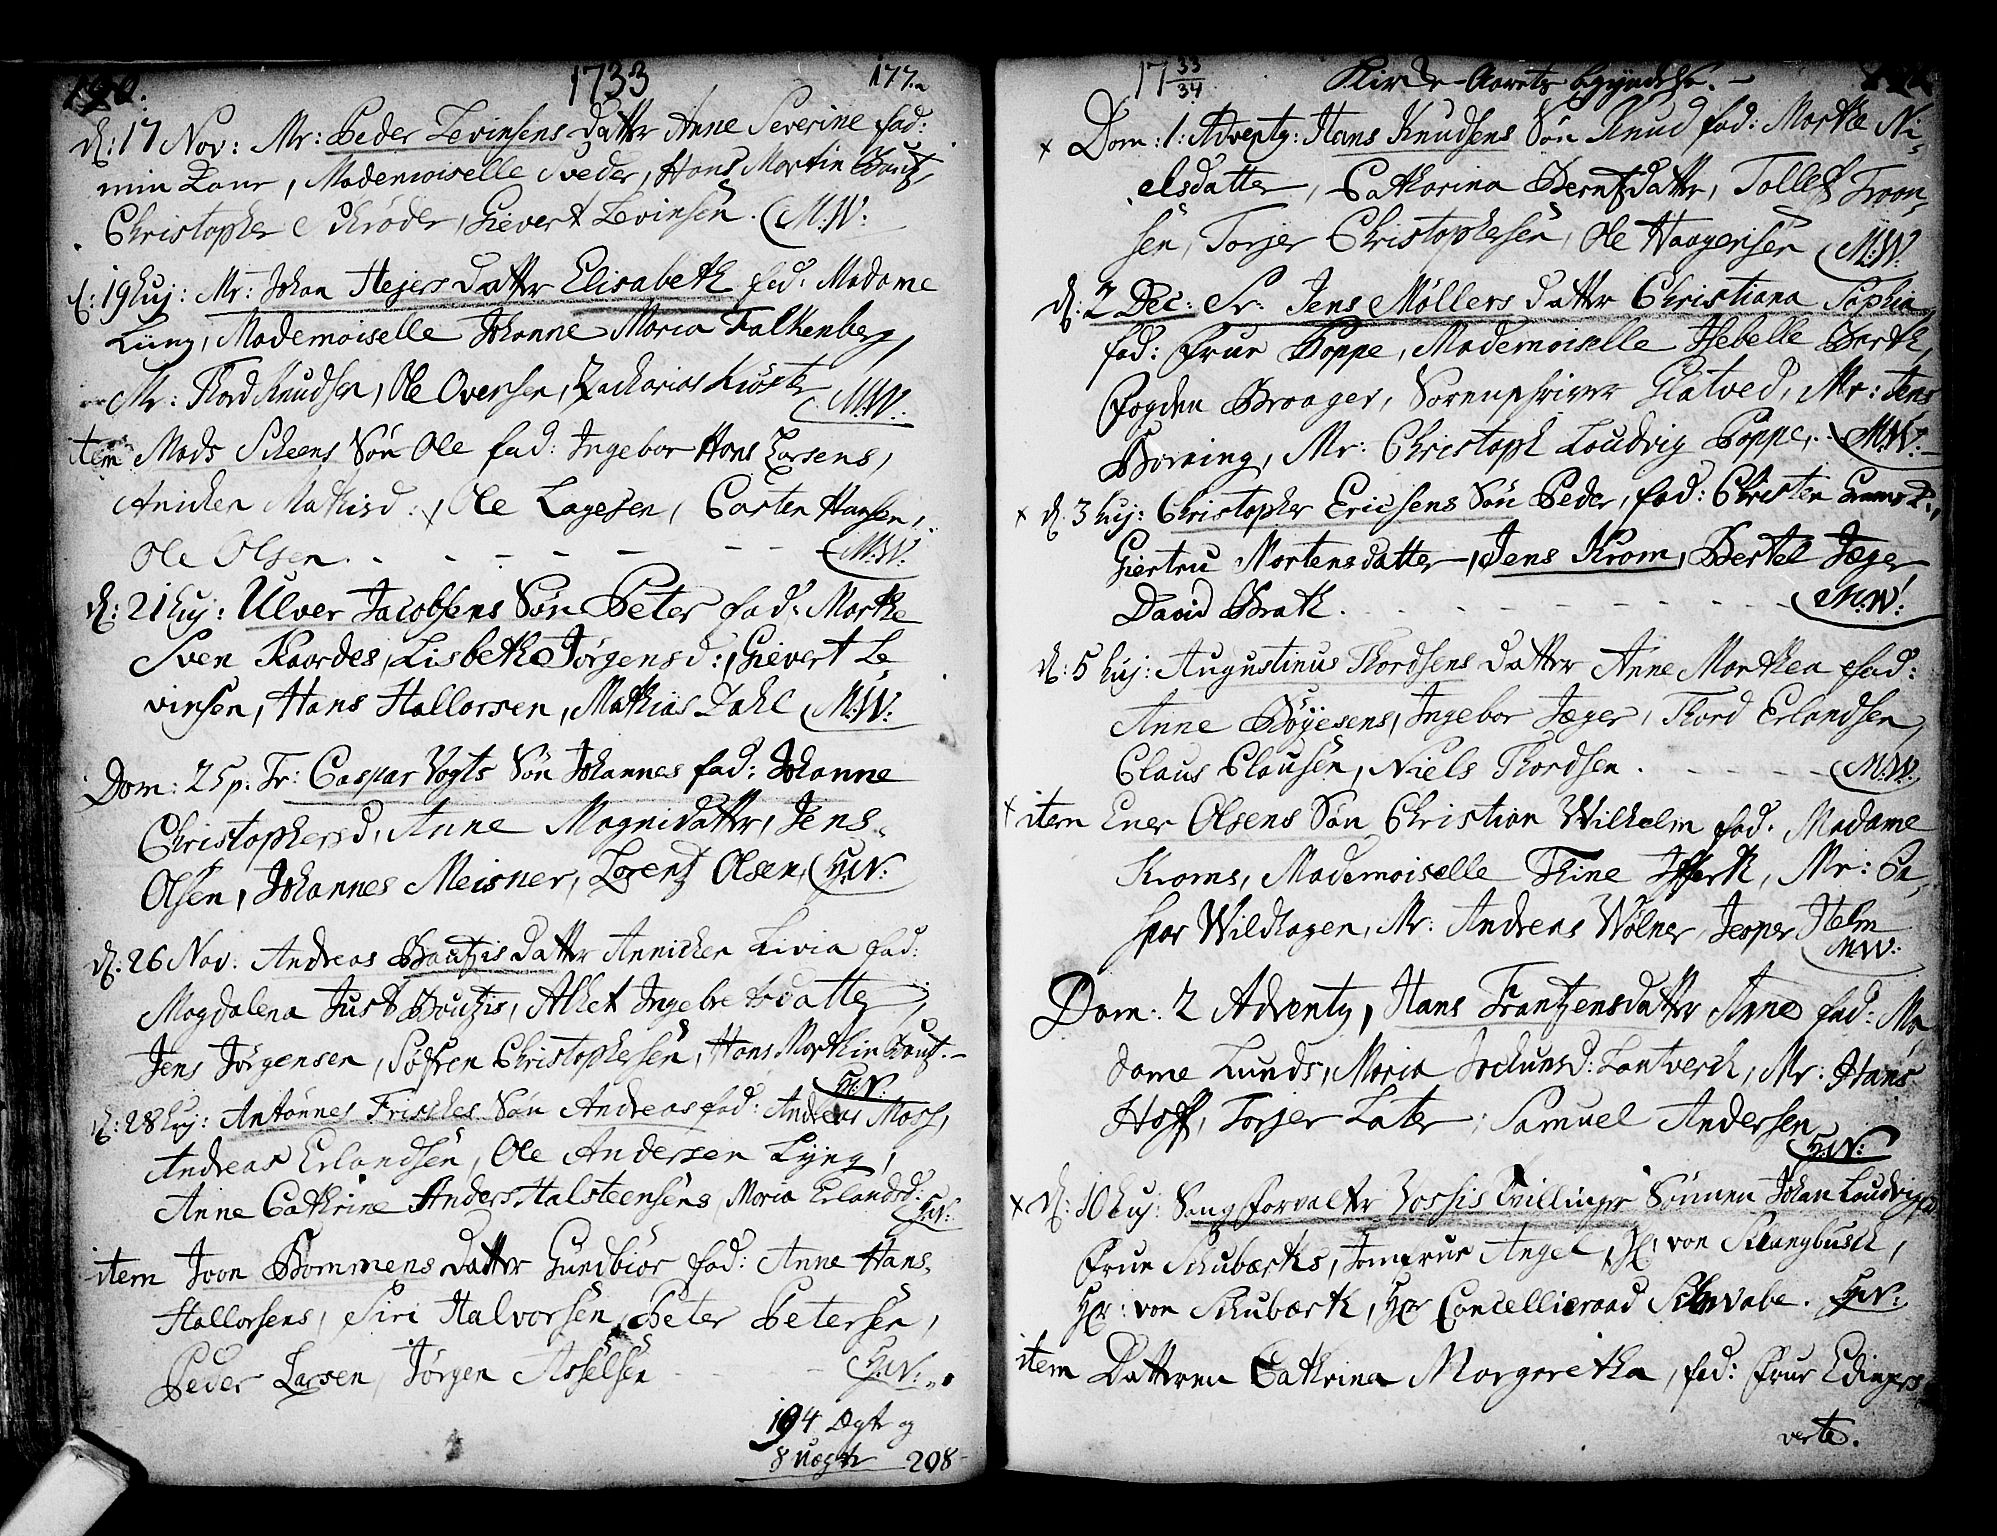 190. 1733 177.
d: 17 Nov: Mr: Peder Levinsens datter Anne Severine fad:
min Kone, Mademoiselle Sveder, Hans Martin Bautz,
Christopher Schröder, Gievert Levinsen. M.W:
d: 19 huj: Mr: Johan Hejers datter Elisabeth fad: Madame
Lüng, Mademoiselle Johanne Maria Falkenberg,
Mr: Thord Knudsen, Ole Oversen, Zacharias M.W:
item Mads Scheens Søn Ole fad: Ingebor Hans Larsens,
Anichen Mathisd:, Ole Lagesen, Carsten Hansen,
Ole Olsen. - - - - - - M.W:
d: 21 huj: Ulver Jacobsens Søn Peter fad: Marthe
Sven Kaardes, Lisbeth Jörgensd:, Gievert Le
vinsen, Hans Hallorsen, Mathias Dahl M.W:
Dom: 25 p. Tr: Caspar Vogts Søn Johannes fad: Johanne
Christophersd, Anne Magnidatter, Jens
Olsen, Johannes Meisner, Lorentz Olsen, H.N:
d: 26 Nov: Andreas Bautzis datter Annichen Livia fad:
Magdalena Just Bautzis, Alhet Ingebretsdatter
Jens Jörgensen, Søfren Christophersen, Hans Morthin Bautz. -
H.N:
d: 28 huj: Antonnes Frisches Søn Andreas fad: Andreas Mosh,
Andreas Erlandsen, Ole Andersen Lyng,
Anne Cathrine Anders Halsteensens, Maria Erlandsd: H.N:
item Joon Bommens datter Gundbiör fad: Anne Hans
Hallorsens, Siri Halvorsen, Peter Petersen,
Peder Larsen, Jörgen Asselsen - - H.N:
194 Ægte og
8 uægte 208

17 33/34 Kirke-Aarets begyndelse. -
x Dom: 1: Adventg: Hans Knudsens Søn Knud fad: Marthe Ni-
elsdatter, Catharina Berntzdatter, Tollef Troon-
sen, Torjer Christophersen, Ole Haagensen M.W:
d: 2 Dec: Sr. Jens Möllers datter Christiana Sophia,
fad: Frue Poppe, Mademoiselle Hebelle Barth,
Fogden Braager, Sorenskriver Giätved, Mr: Jens
Borning, Mr: Christoph Loudvig Poppe, M.W:
x d: 3 huj: Christopher Ericsens Søn Peder, fad: Christen
Giertru Mortensdatter -, Jens Krom, Bertel Jæger
David Brath. - - - - - - M.W:
d: 5 huj: Augustinus Thordsens datter Anne Marthea fad:
Anne Böyesens, Ingebor Jæger, Thord Erlandsen,
Claus Clausen, Niels Thordsen. - - - - M.W:
x item Ener Olsens Søn Christian Wilhelm fad. Madame
Kroms, Mademoiselle Thine, Mr: Ca-
spar Wildhagen, Mr: Andreas Wölner, Jesper Helm
M.W:
Dom: 2 Adventg, Hans Frantzens datter Anne fad: Ma
dame Lunds, Maria Jochumsd: Lantverch, Mr: Hans
Hoff, Torjer Later, Samuel Andersen
H.N:
x d: 10 huj: Saugforvalter Jossis Tvillinger Sønnen Johan Loudvig
Frue Schubarths, Jomfrue Angel, Hr: von Schangbusch,
Hr: von Schubarth, Hr Cancelliraad Schwabe. H.N:
item Datteren Cathrina Margaretha, fad: Frue Edingers
verte.